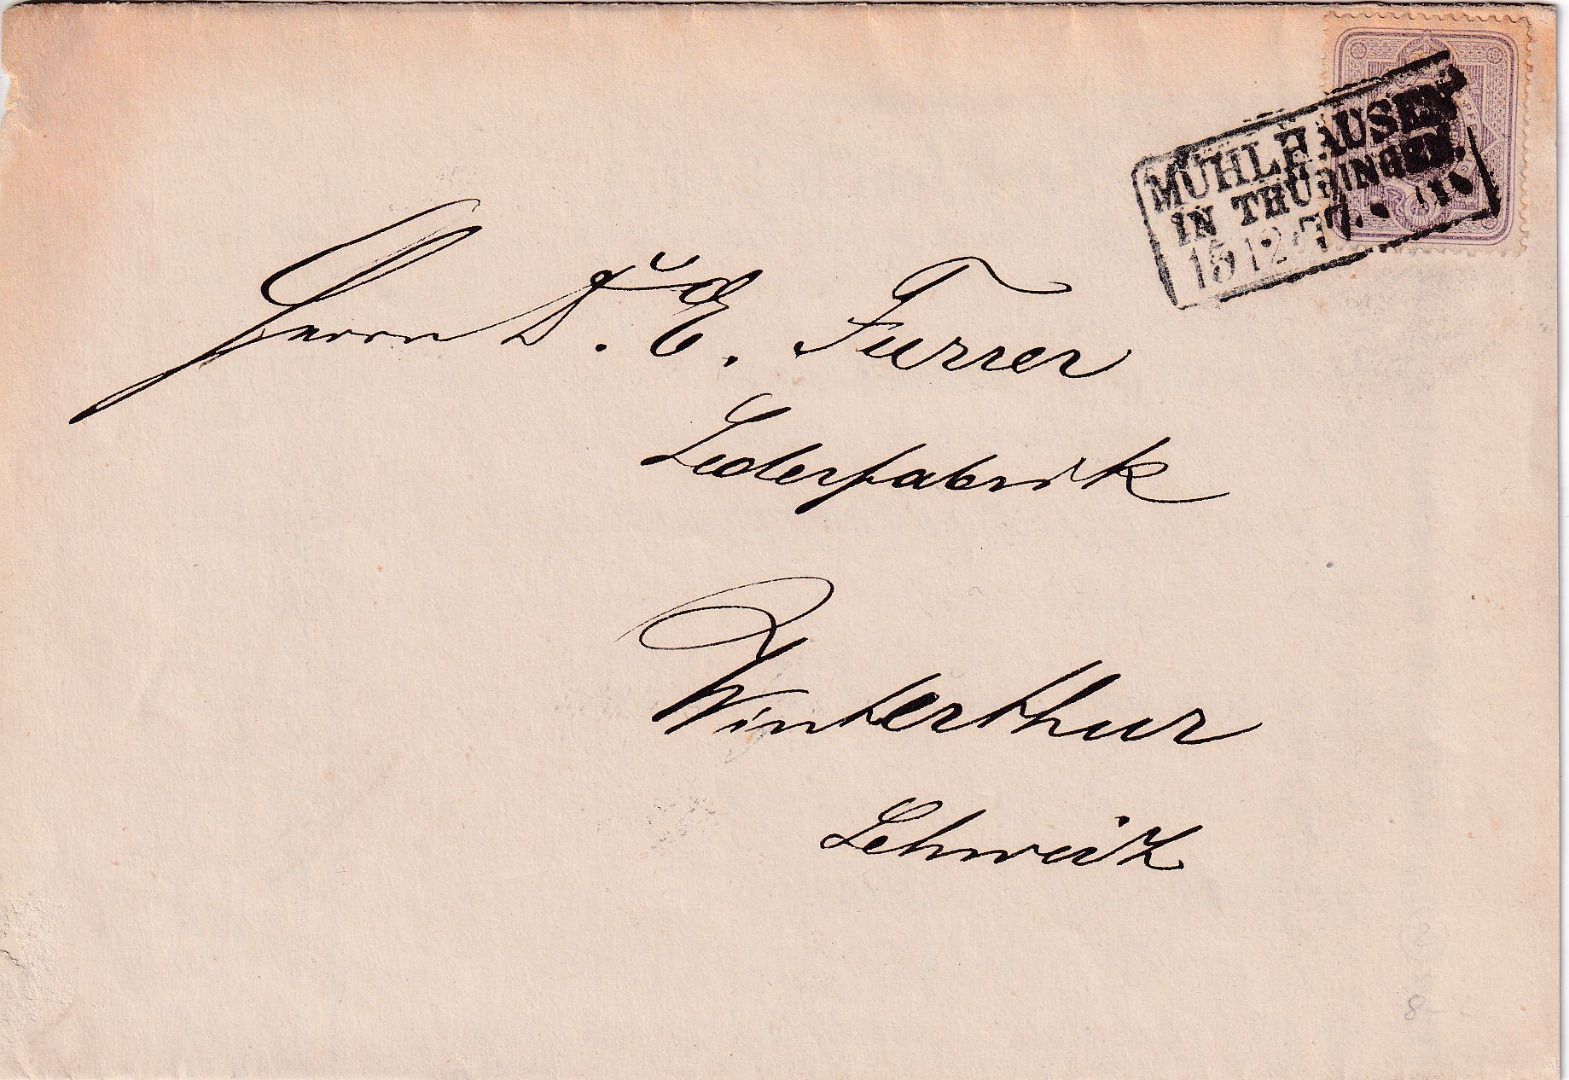 MÜHLHAUSEN
IN THÜRINGEN.
15 12 77.
Herrn D. & E. Furrer
Lederfabrik
Winterthur
Schweiz
2
8-